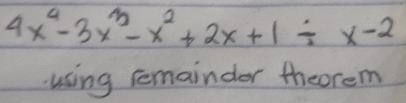 4x⁴-3x³-x²+2x+1 ÷ x-2
using remainder theorem